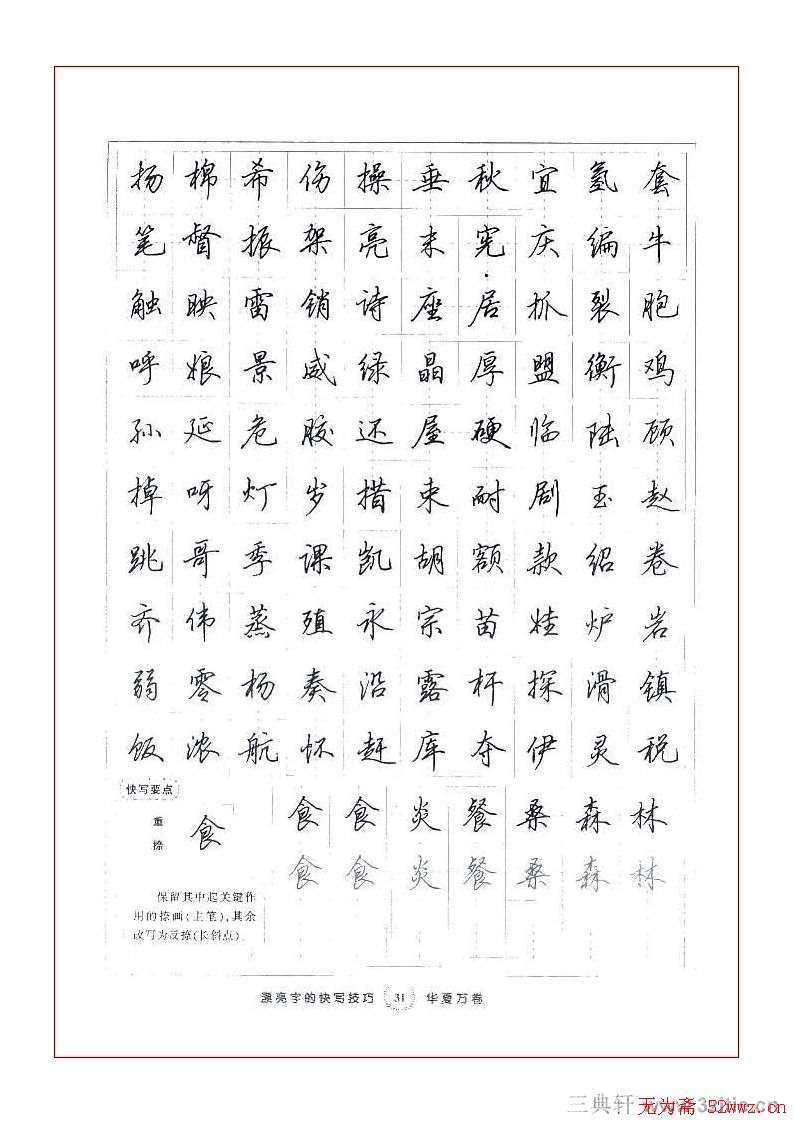 扬 棉 希 伤 操 垂 秋 宜 氢 套
笔 督 振 架 亮 末 宪 庆 编 牛
触 映 雷 销 诗 座 居 抓 裂 胞
呼 娘 景 威 绿 晶 厚 盟 衡 鸡
孙 延 危 胶 还 屋 硬 临 陆 顾
掉 呀 灯 岁 措 束 耐 剧 玉 赵
跳 哥 季 课 凯 胡 额 款 绍 卷
齐 伟 蒸 殖 永 宗 苗 娃 炉 岩
弱 零 杨 奏 沿 露 杆 探 滑 镇
饭 浓 航 怀 赶 库 夺 伊 灵 税
快写要点
重捺
食
食 食 炎 餐 桑 森 林
食 食 炎 餐 桑 森 林
保留其中起关键作
用的捺画(主笔),其余
改写为反捺(长斜点)
漂亮字的快写技巧 31 华夏万卷
三典轩
无为斋 52wwz.cn